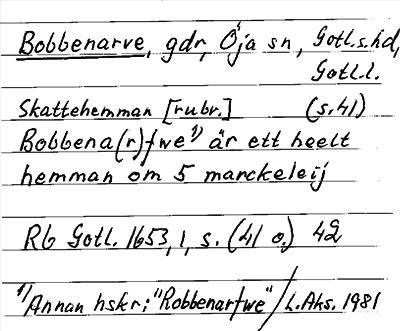 Bobbenarve, gdr, Öja sn, Gotl.s.hd,
Gotl.l.
Skattehemman [rubr.] (s.41)
Bobbena(r)fwe¹⁾ är ett heelt
hemman om 5 marckeleij
Rb Gotl. 1653, 1, s. (41 o.) 42
¹⁾Annan hskr: "Robbenarfwe" / L.Aks. 1981